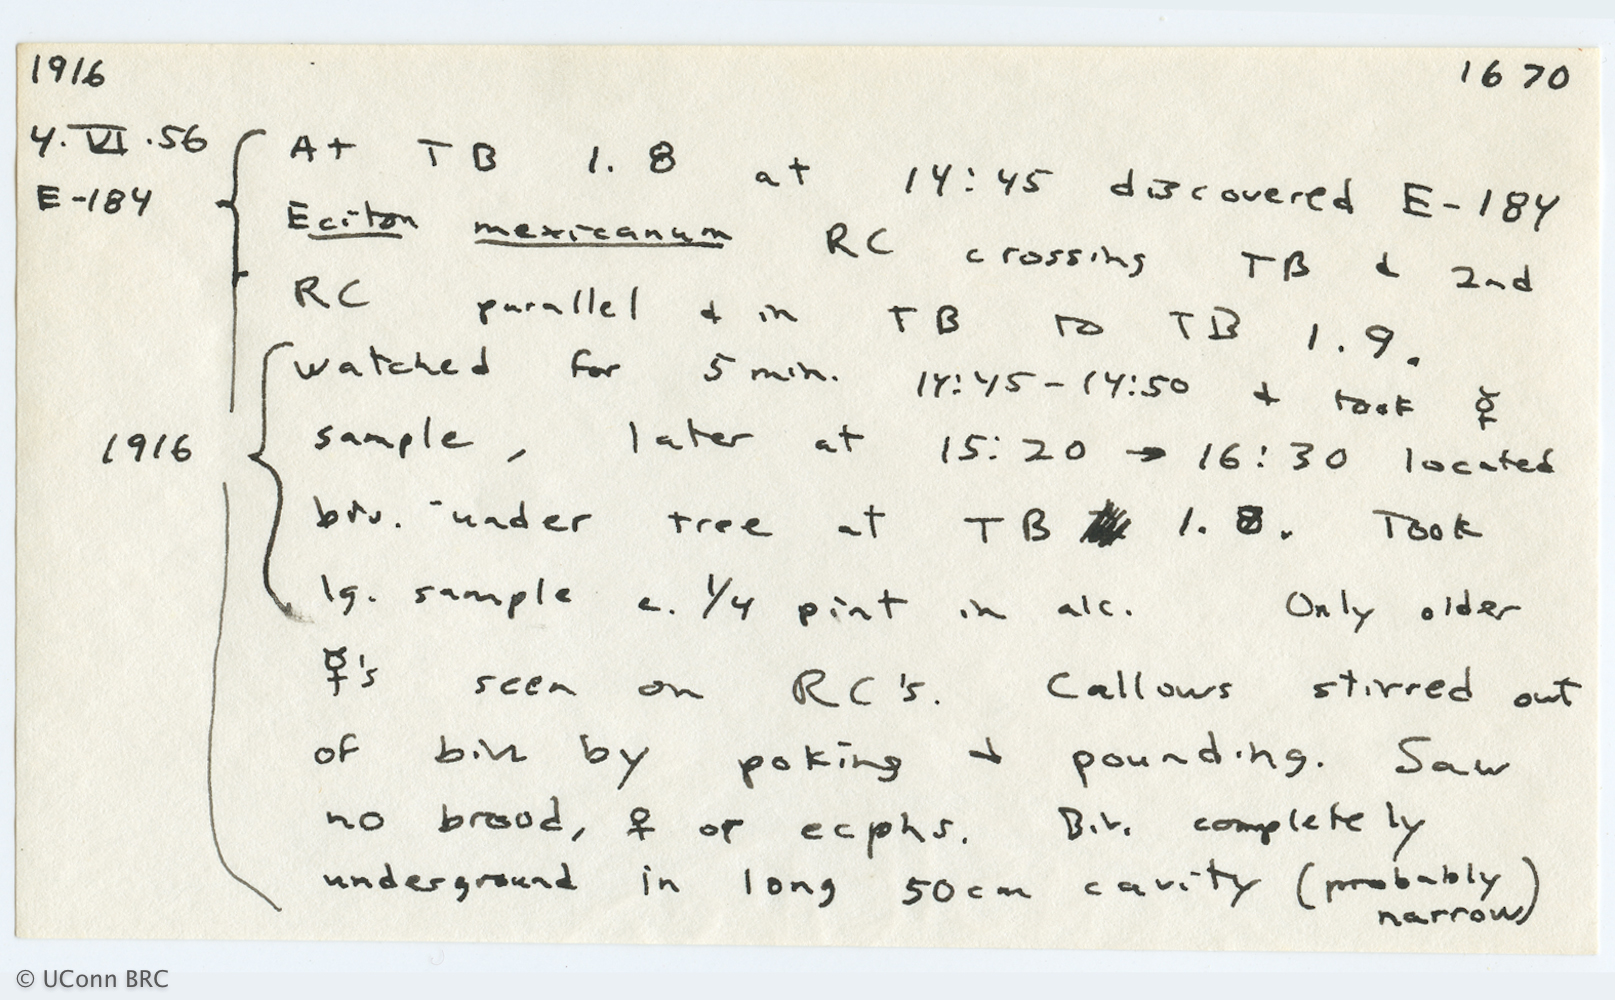 1916 1670
4.VI.56 At TB 1.8 at 14:45 discovered E-184
E-184 Eciton mexicanum RC crossing TB & 2nd
RC parallel & in TB to TB 1.9.
watched for 5 min. 14:45-14:50 & took ☿
1916 sample, later at 15:20 → 16:30 located
biv. under tree at TB 1.8. Took
lg. sample c. 1/4 pint in alc. Only older
☿'s seen on RC's. Callows stirred out
of biv by poking & pounding. Saw
no brood, ♀ or ecphs. Biv. completely
underground in long 50cm cavity (probably
narrow)
© UConn BRC